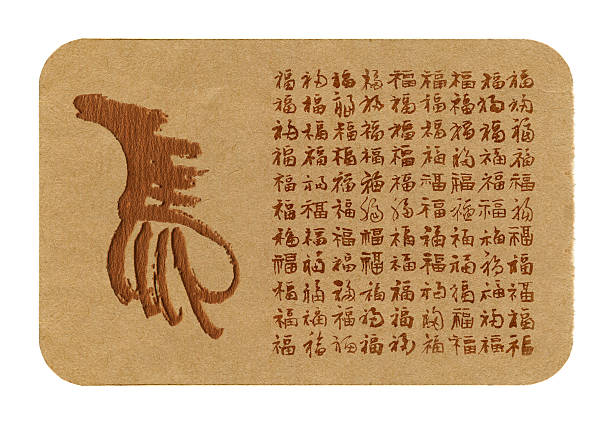 馬
福福福福福福福福福
福福福福福福福福福
福福福福福福福福福
福福福福福福福福福
福福福福福福福福福
福福福福福福福福福
福福福福福福福福福
福福福福福福福福福
福福福福福福福福福
福福福福福福福福福
福福福福福福福福福